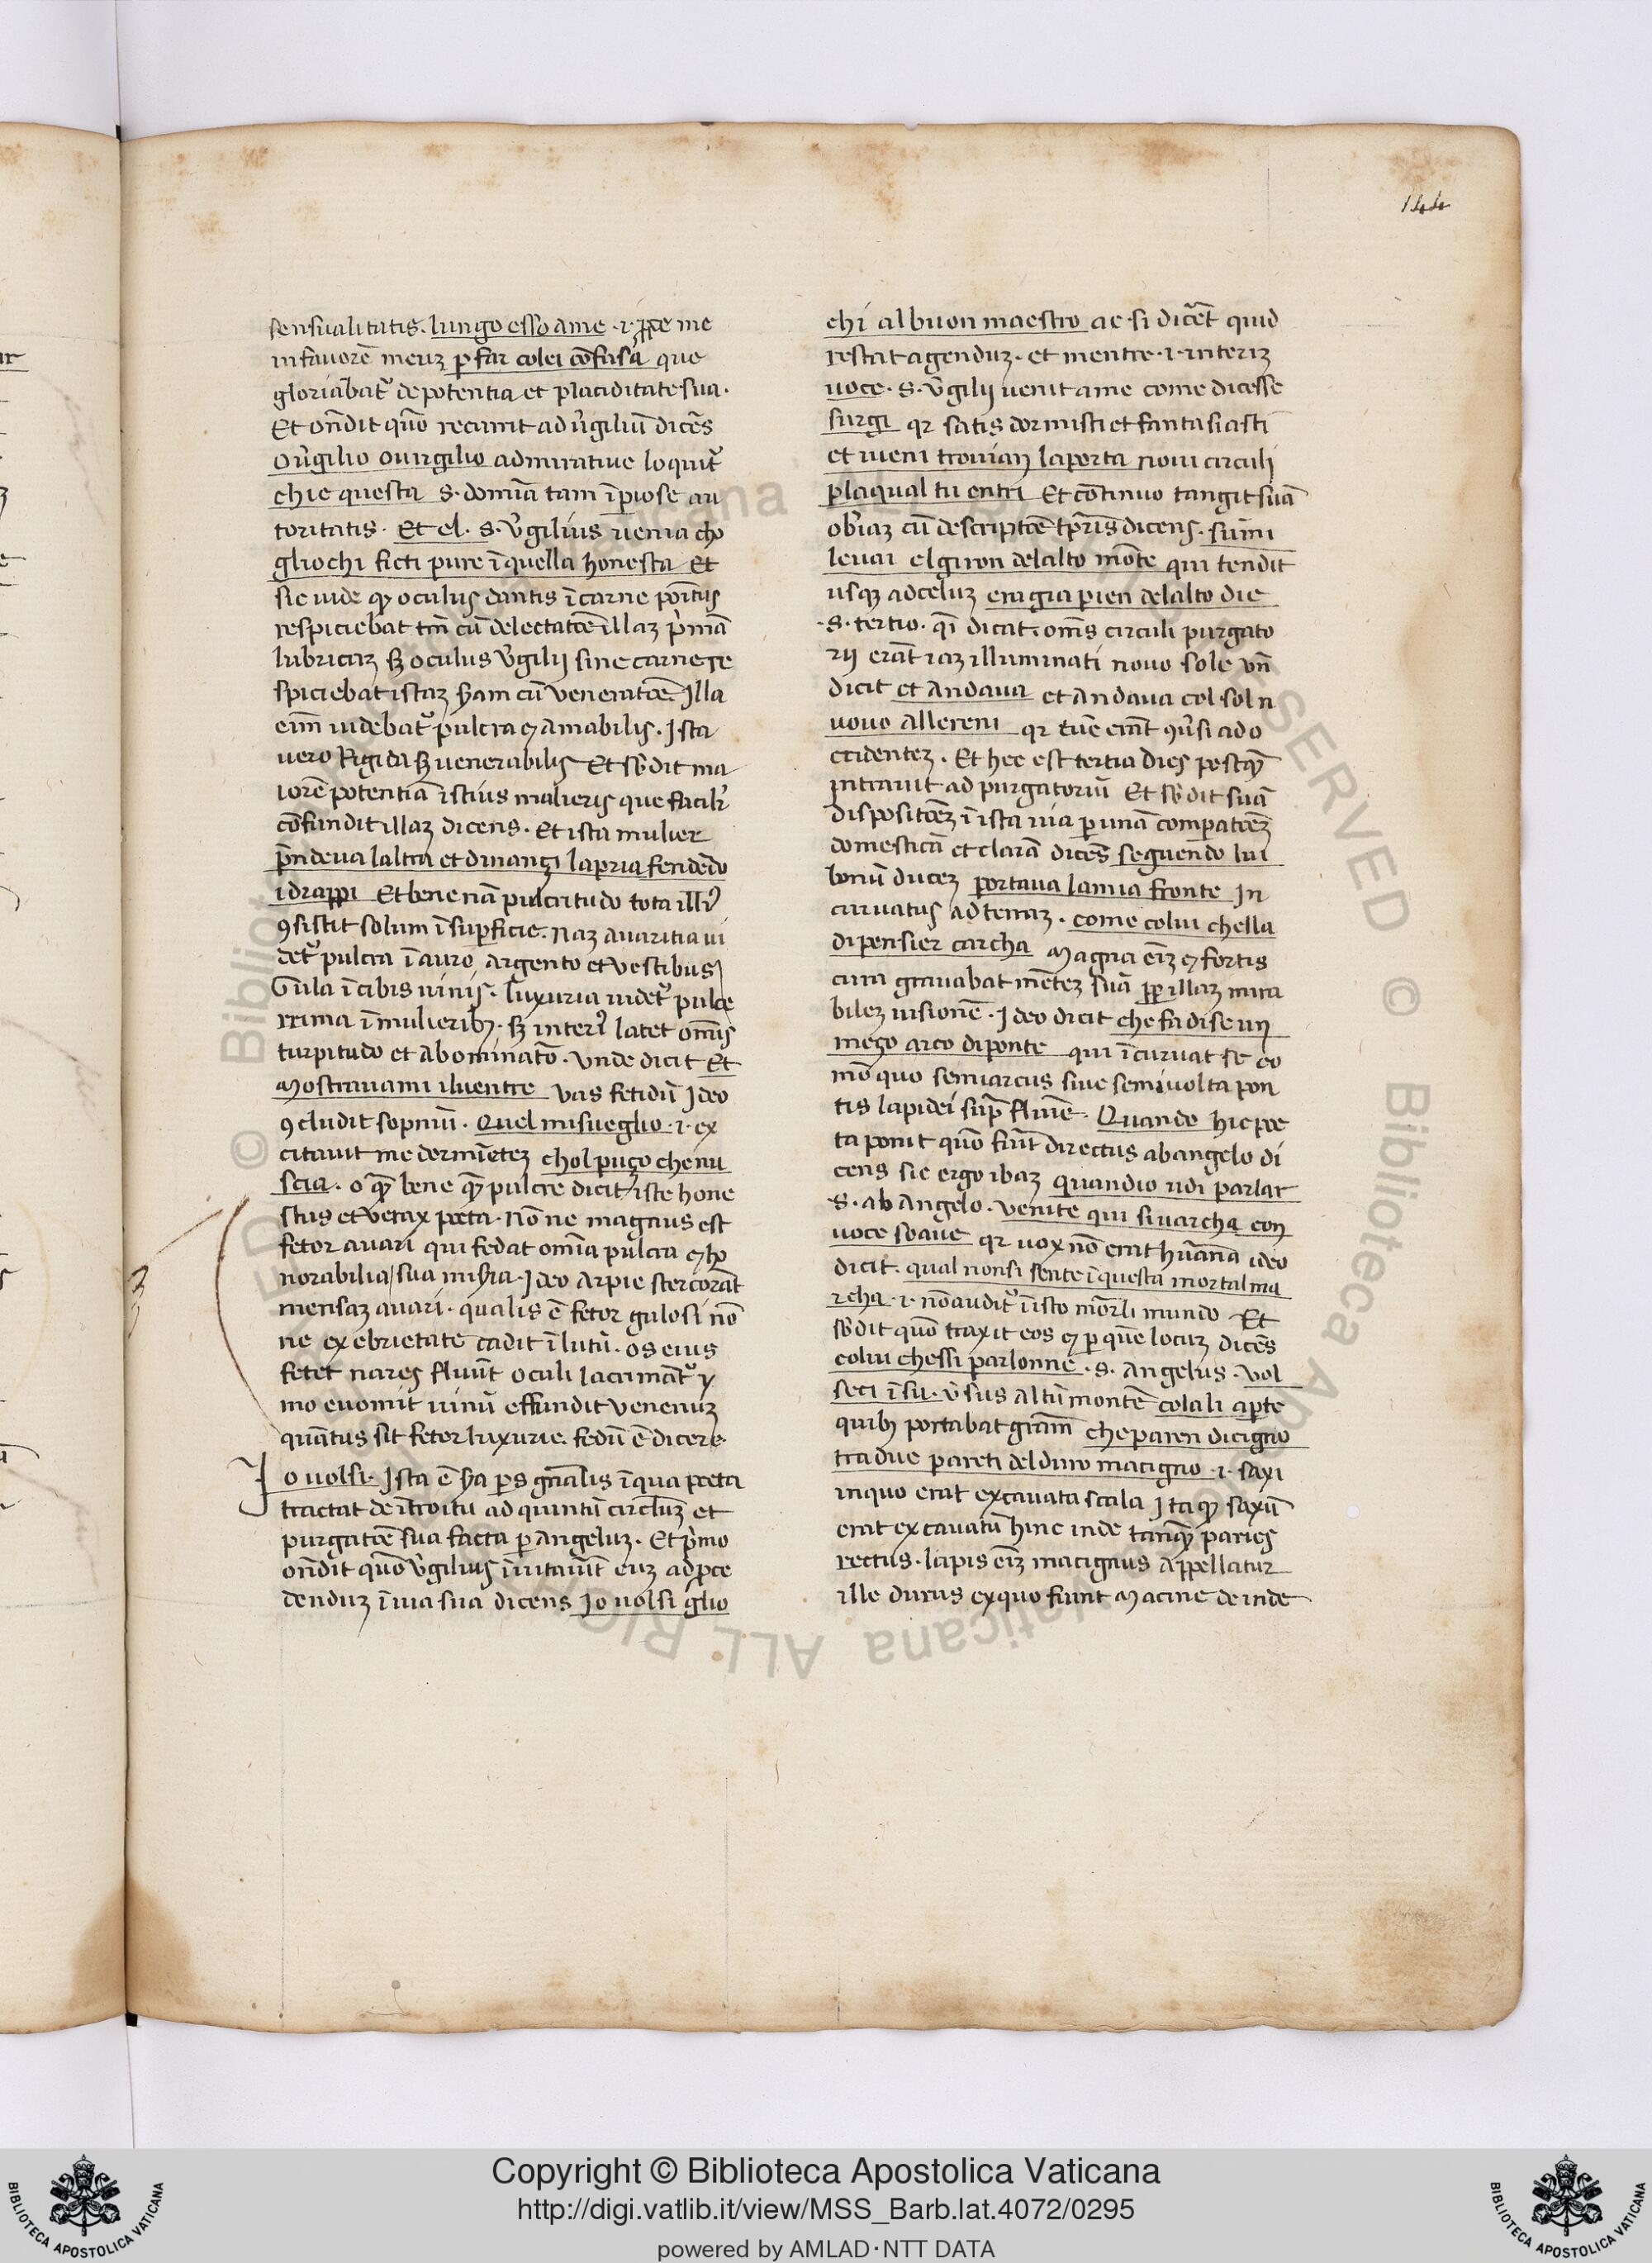 144
sensualitatis. lungo esso a me .i. ꝓpe me
in fauorē meuꝫ ꝑ far colei cōfusa que
gloriabat᷑ de potentia et placiditate sua.
Et on̄dit quō recurrit ad v̓giliū dicēs
O v̓gilio o uirgilio admiratiue loquit᷑
chi e questa .S. domīa tam īpiose au
toritatis. Et el .S. v̓gilius uenia cho
gliochi ficti pure ī quella honesta Et
sic uide ꝙ oculus dantis ī carne poītus
respiciebat tm̄ cū delectatōe illaꝫ p̓mā
lubricaꝫ sꝫ oculus v̓gilij sine carne re
spiciebat istaꝫ s̄am cū veneratōe. Illa
eim̄ uidebat᷑ pulcra ⁊ amabilis. Ista
uero Rigida sꝫ venerabilis Et sb̓dit ma
iorē potentiā istius mulieris que facilr̓
cōfundit illaꝫ dicens. Et ista mulier
p̄ndeua laltra et dinançi lapria fendēdo
i drappi Et bene nā pulcritudo tota illi᷒
ꝯsistit solum ī suꝑficie. Naꝫ auaritia ui
det᷑ pulcra ī auro argento et vestibus
Gula ī cibis uinis. Luxuria uidet᷑ pulce
rrima ī mulieribꝫ. sꝫ interi᷒ latet om̄is
turpitudo et abominatō. Vnde dicit Et
Mostrauami iluentre vas fetidū Ideo
ꝯcludit sopniū. Quel misueglio .i. ex
citauit me dormīeteꝫ chol puço che nu
scia. o qꝫ bene qꝫ pulcre dicit iste hone
stus et verax poeta. Nō ne magnus est
fetor auari qui fedat omīa pulcra ⁊ ho
norabilia sua mis̓ia. Ideo Arpie stercorāt
mensaꝫ auari. qualis ē fetor gulosi nō
ne ex ebrietate cadit ī lutū. os eius
fetet nares fluūt oculi lacrimāt᷑ y
mo euomit uinū effundit venenuꝫ
quātus sit fetor luxurie. fedū ē dicere.
Io uolsi. Ista ē s̄a ꝑs gn̄alis ī qua poeta
tractat de ītroitu ad quintū circluꝫ et
purgatōe sua facta ꝑ angeluꝫ. Et p̓mo
on̄dit quō v̓gilius īuitauit euꝫ ad ꝓce
denduꝫ ī uia sua dicens Io uolsi glio
chi al buon maestro ac si dicēt quid
restat agenduꝫ. et mentre .i. interiꝫ
uoce .S. v̓gilij uenit a me come dicesse
surgi qr satis dormisti et fantasiasti
et uieni trouian la porta noui circuli
ꝑ laqual tu entri Et cōtinuo tangit suā
obīaꝫ cū descriptōe tꝑris dicens. su mi
leuai el giron delalto mōte qui tendit
usqꝫ ad celuꝫ era gia pien delalto die
.S. tertio. qī dicat. om̄s circuli purgato
rij erāt iaꝫ illuminati nouo sole vn̄
dicit et andaua et andaua col sol n
uouo allereni qr tūc erāt ꝯu̓si ad o
ccidenteꝫ. Et hec est tertia dies postqꝫ
intrauit ad purgatoriū Et sb̓dit suā
dispositōeꝫ ī ista uia ꝑ unā comꝑatōeꝫ
domesticā et clarā dicēs seguendo lui
bonū duceꝫ portaua la mia fronte In
curuatus ad terraꝫ. come colui chella
di pensier carcha Magna eiꝫ ⁊ fortis
cura grauabat mēteꝫ suā ꝓp illaꝫ mira
bileꝫ uisionē. Ideo dicit che fa di se un
meço arco di ponte qui īcuruat se eo
mō quo semiarcus siue semiuolta pon
tis lapidei supra fluiē. Quando hic poe
ta ponit quō fuīt directus ab angelo di
cens sic ergo ibaꝫ quandio udi parlar
.S. ab Angelo. venite qui siuarcha con
uoce soaue qr uox nō erat hūana ideo
dicit. qual non si sente ī questa mortal ma
rcha .i. nō audit᷑ ī isto morli mundo Et
sb̓dit quō traxit eos ⁊ ꝑ quē locuꝫ dicēs
colui chessi parlonne .S. Angelus. vol
seci ī su. v̓sus altū montē colali aperte
quibꝫ portabat gr̄am che paren dicigno
tra due pareti del duro macigno .i. saxi
in quo erat excauata scala Itaqꝫ saxū
erat excauatū hinc inde tanqꝫ paries
rectus. lapis eiꝫ macignus Appellatur
ille durus ex quo fiunt Macine deinde
Copyright © Biblioteca Apostolica Vaticana
http://digi.vatlib.it/view/MSS_Barb.lat.4072/0295
powered by AMLAD·NTT DATA